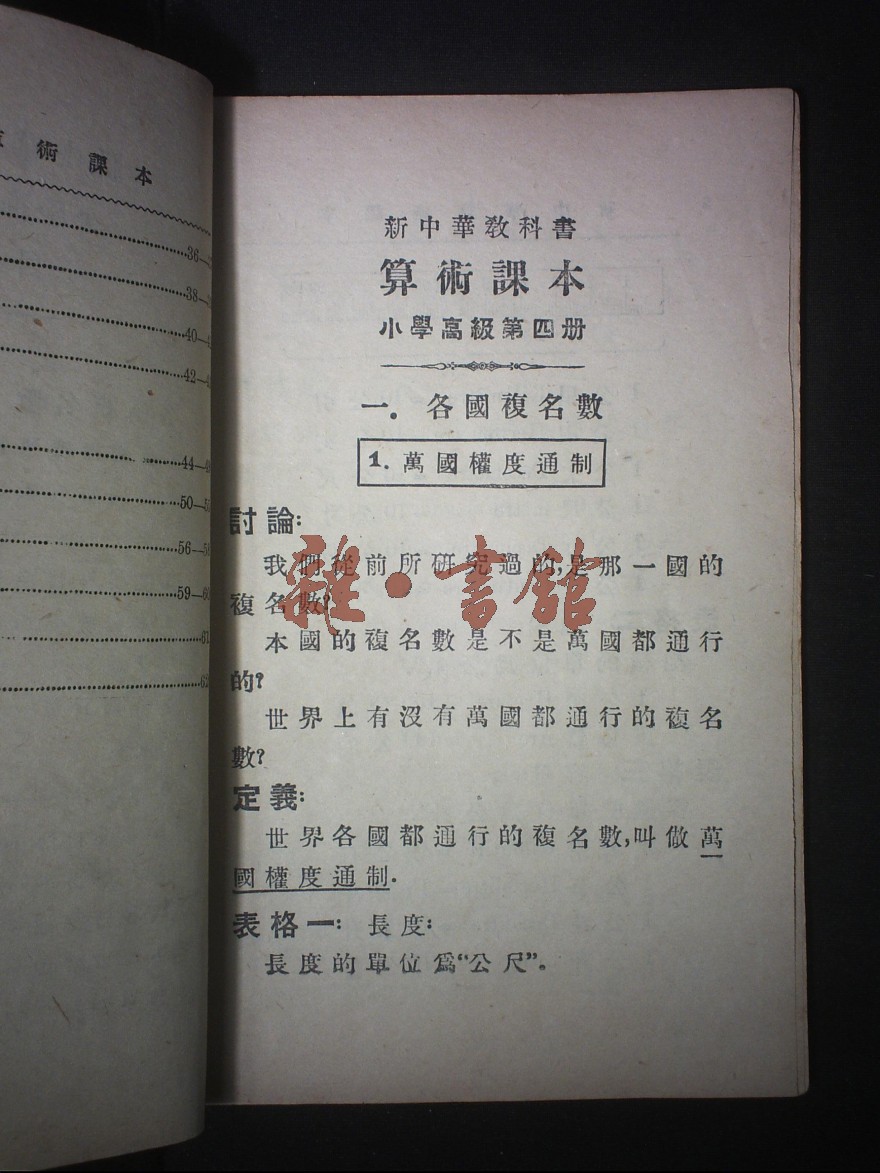 術課本
36—
38—
40—
42—
44—
50—5
56—58
59—60
61
62
新中華教科書
算術課本
小學高級第四册
一. 各國複名數
1. 萬國權度通制
討論:
我們從前所研究過的,是那一國的
複名數?
本國的複名數是不是萬國都通行
的?
世界上有沒有萬國都通行的複名
數?
定義:
世界各國都通行的複名數,叫做萬
國權度通制.
表格一: 長度:
長度的單位爲“公尺”.
雜·書館